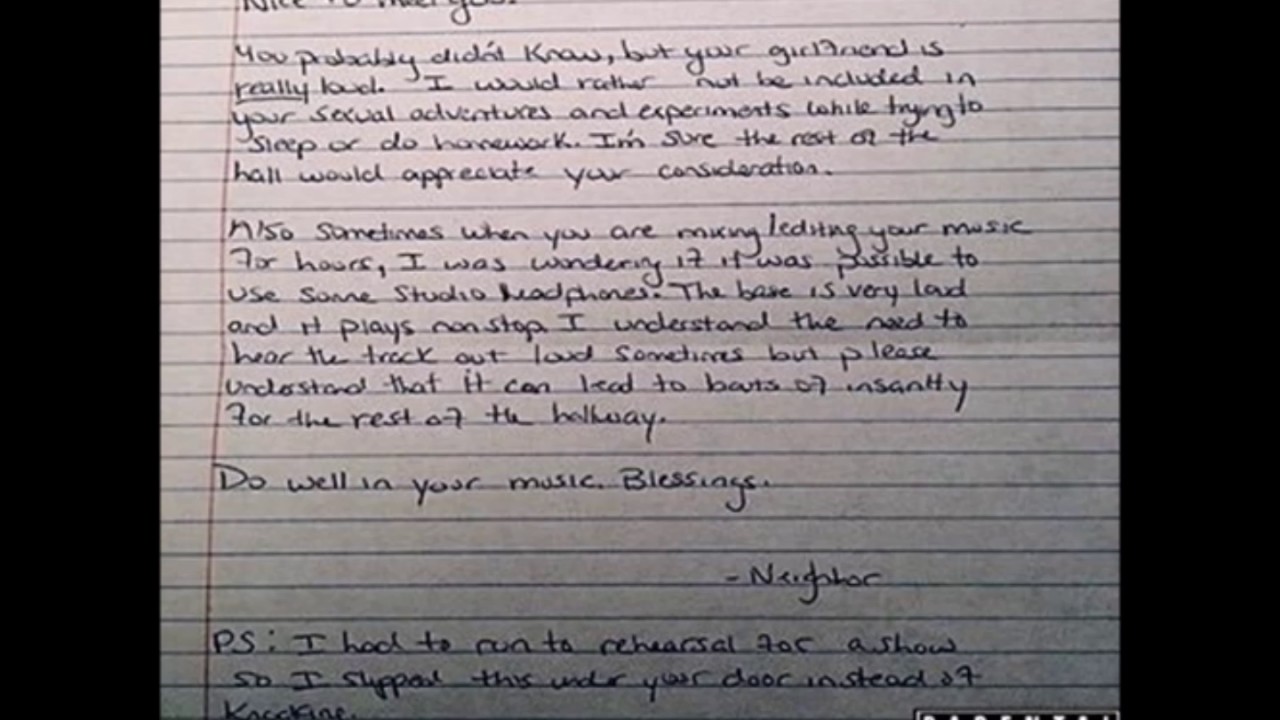 Nice to meet you.
You probably didn't know, but your girlfriend is
really loud. I would rather not be included in
your sexual adventures and experiments while trying to
sleep or do homework. I'm sure the rest of the
hall would appreciate your consideration.
Also sometimes when you are mixing/editing your music
for hours, I was wondering if it was possible to
use some studio headphones. The base is very loud
and it plays non stop. I understand the need to
hear the track out loud sometimes but please
understand that it can lead to bouts of insanity
for the rest of the hallway.
Do well in your music. Blessings.
- Neighbor
PS: I had to run to rehearsal for a show
so I slipped this under your door instead of
knocking.
PARENTAL